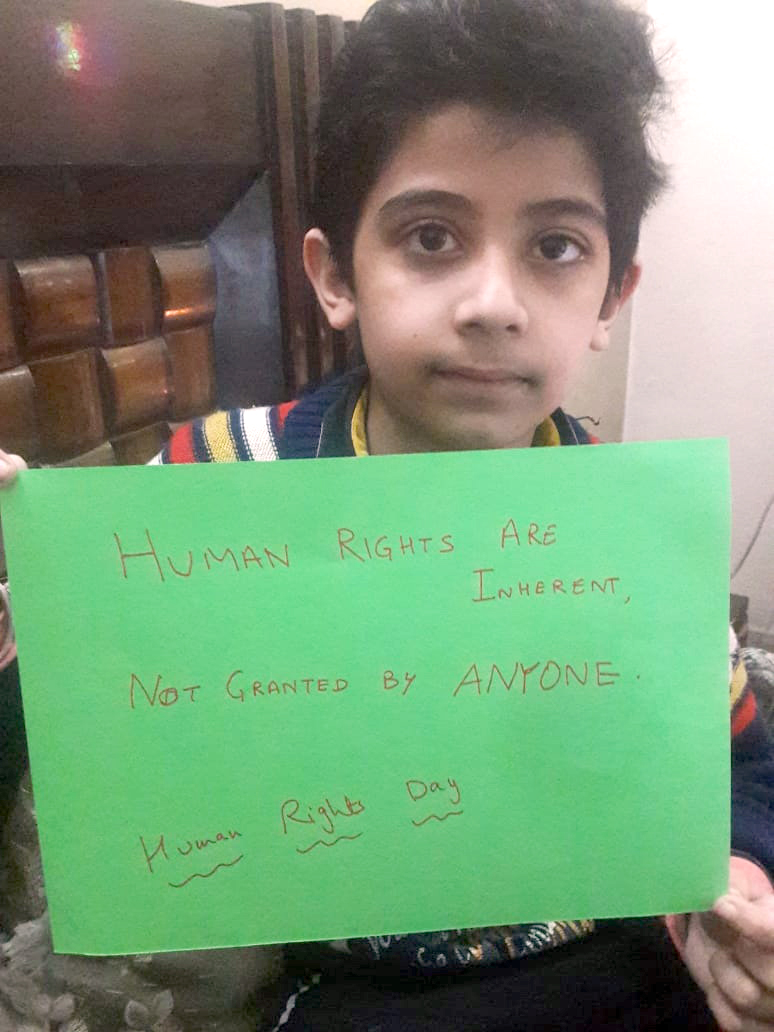 HUMAN RIGHTS ARE
INHERENT,
NOT GRANTED BY ANYONE.
Human Rights Day